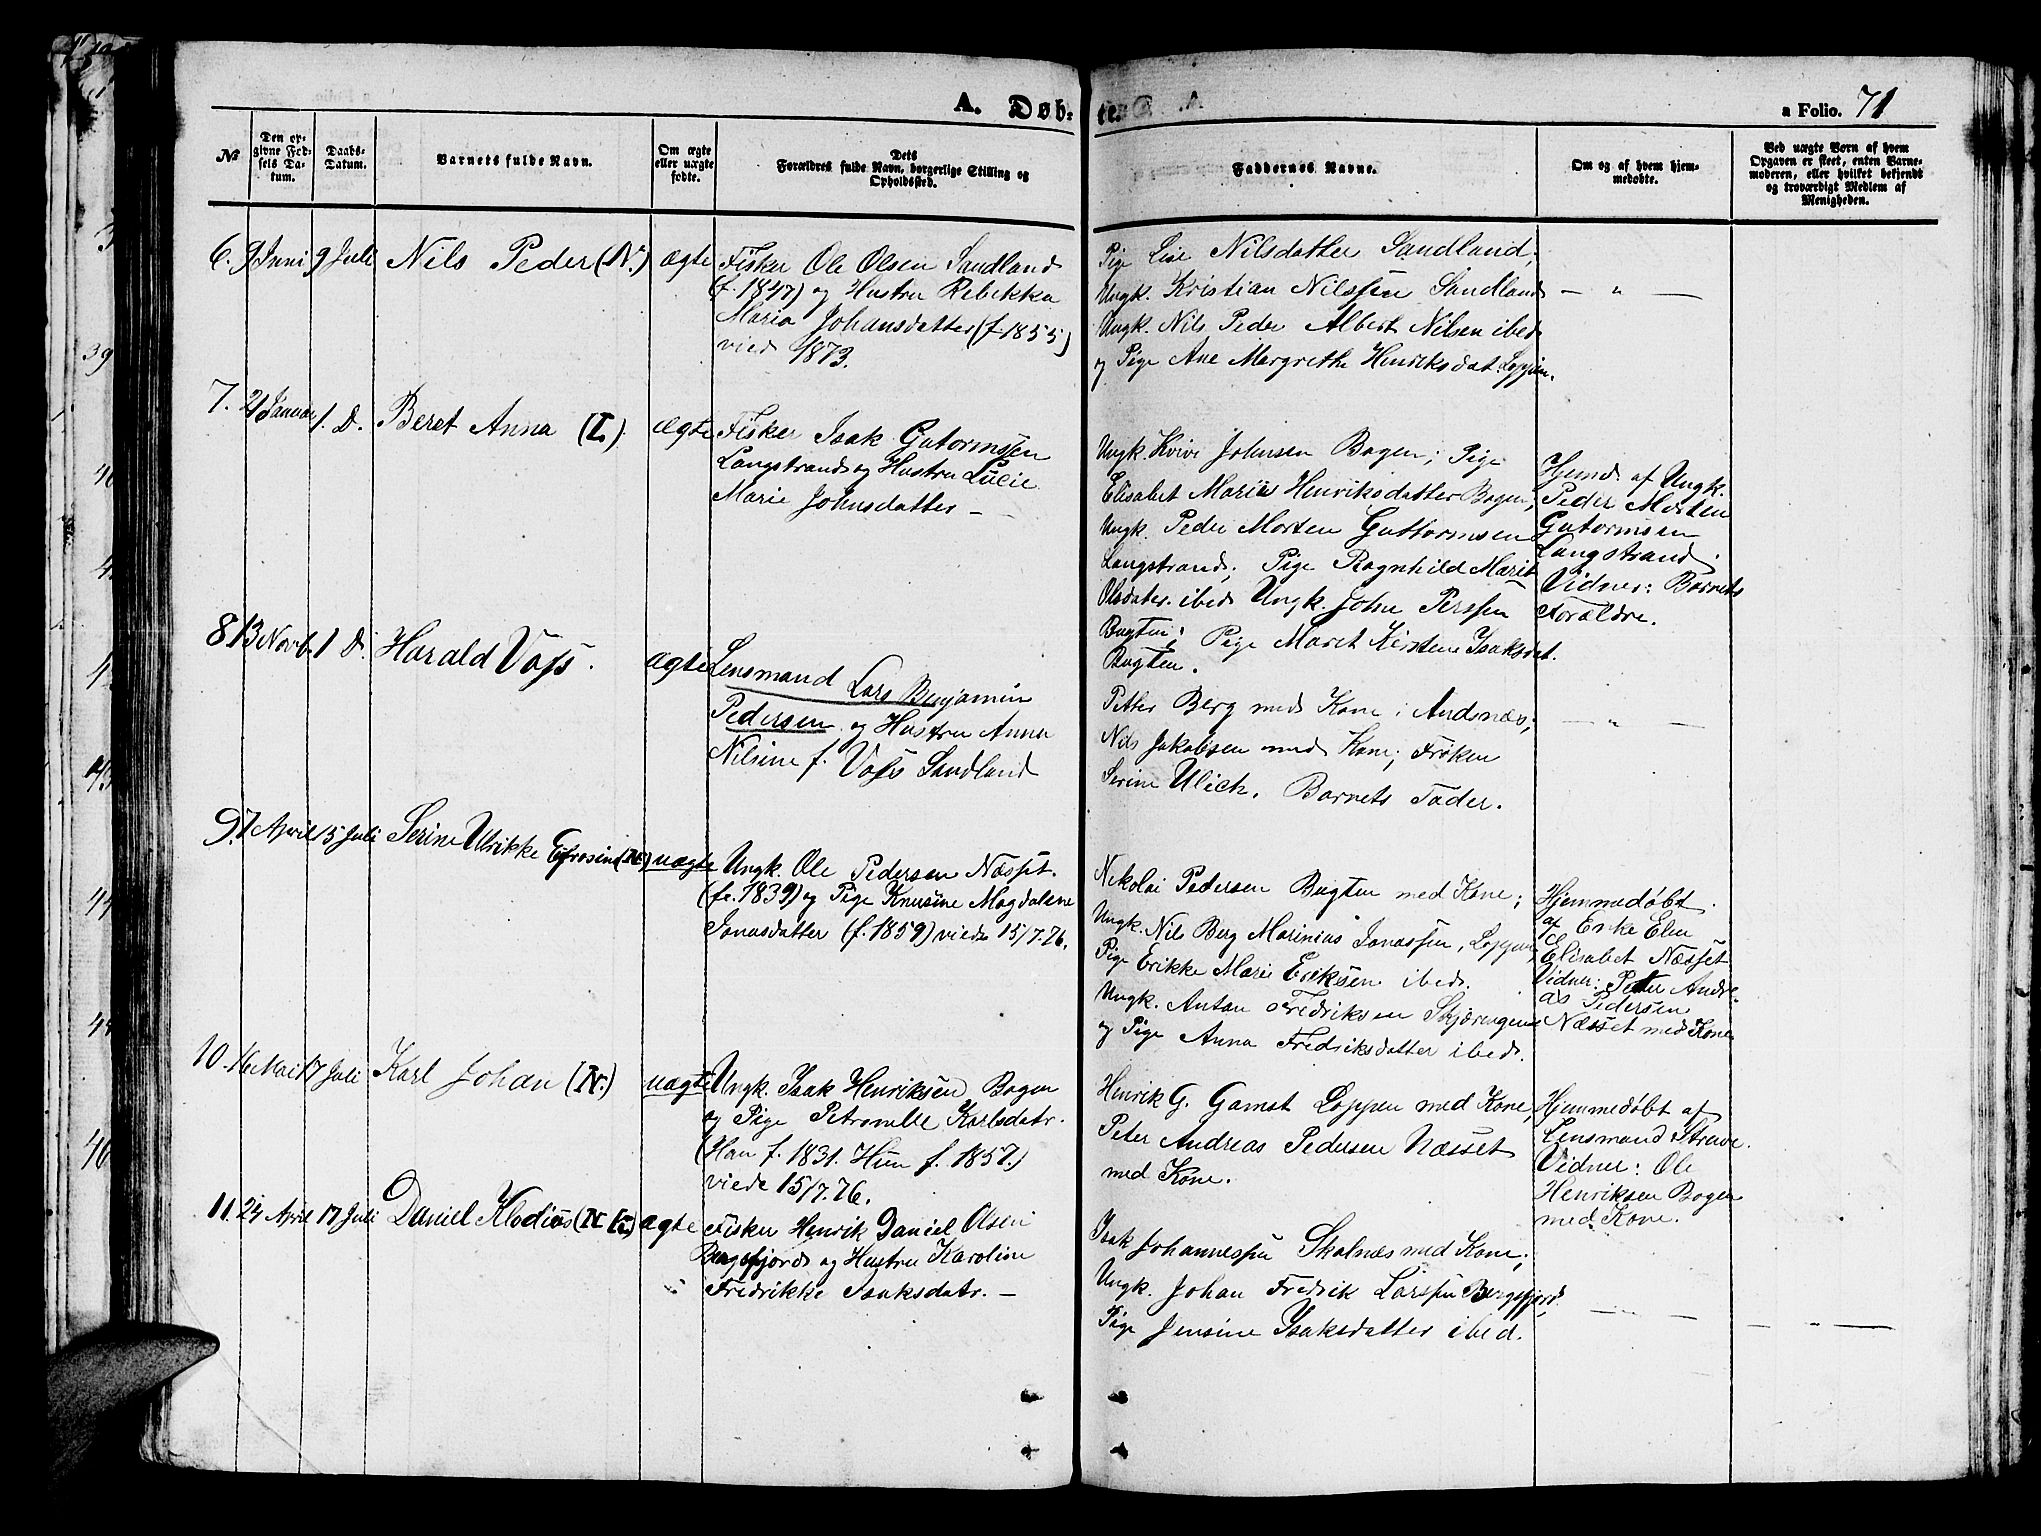 A. Døb-
te.
a Folio. 71
№
Den op-
givne Fød-
sels Da-
tum.
Daabs-
Datum.
Barnets fulde Navn.
Om ægte
eller uægte
fødte.
Dets
Forældres fulde Navn, borgerlige Stilling og
Opholdssted.
Faddernes Navne.
Om og af hvem hjem-
medøbte.
Ved uægte Børn af hvem
Opgaven er skeet, enten Barne-
moderen, eller hvilket bekjendt
og troværdigt Medlem af
Menigheden.
6. 9 Juni 9 Juli Nils Peder (N.) ægte
Fisker Ole Olsen Sandland
(f. 1847) og Hustru Rebekka
Maria Johansdatter (f. 1855)
vied 1873.
Pige Lise Nilsdatter Sandland;
Ungk. Kristian Nilssen Sandland
Ungk. Nils Peder Albert Nilsen ibed
og Pige Ane Margrethe Henriksdat. Loppen.
— " —
7. 21 Januar 1. D. Beret Anna (L.) ægte
Fisker Isak Gutormssen
Langstrand og Hustru Lucie
Marie Johnsdatter —
Ungk. Kvive Johnsen Bogen; Pige
Elisabet Marie Henriksdatter Bogen;
Ungk. Peder Morten Guttormsen
Langstrand; Pige Ragnhild Marit
Olsdatr. ibed Ungk. John Perssen
Bugten; Pige Maret Kirstene Isaksdat.
Bugten.
Hjemd. af Ungk.
Peder Morten
Gutormsen
Langstrand.
Vidner: Barnets
Forældre.
8. 13 Novb. 1 D. Harald Voss. ægte
Lensmand Lars Benjamin
Pedersen og Hustru Anna
Nilsine f. Voss Sandland
Petter Berg med Kone i Andsnæs;
Nils Jakobsen med Kone; Frøken
Serine Ulich. Barnets Fader.
— " —
9. 7 April 15 Juli Serine Ulrikke Efrosine (N) uægte
Ungk. Ole Pedersen Næsset.
(fe. 1839) og Pige Knusine Magdalene
Jonasdatter (f. 1859) viede 15/7.76.
Nikolai Pedersen Bugten med Kone;
Ungk. Nils Berg Marinius Jonassen, Loppen,
Pige Erikke Marie Eriksen ibed.
Ungk. Anton Fredriksen Skjærvengene
og Pige Anna Fredriksdatter ibed.
Hjemmedøbt
af Enke Elen
Elisabet Næsset
Vidner: Peter Andre-
as Pedersen
Næsset med Kone
10. 16 Mai 17 Juli Karl Johan (N.) uægte
Ungk. Isak Henriksen Bogen
og Pige Petronelle Karlsdatr.
(Han f. 1831. Hun f. 1857.)
viede 15/7.76.
Henrik G. Gamst Loppen med Kone,
Peter Andreas Pedersen Næsset
med Kone.
Hjemmedøbt af
Lensmand Struve.
Vidner: Ole
Henriksen Bogen
med Kone.
11. 24 April 17 Juli Daniel Klodius ægte
Fisker Henrik Daniel Olsen
Bergsfjord og Hustru Karoline
Fredrikke Isaksdatr. —
Isak Johannessen Skalnæs med Kone;
Ungk. Johan Fredrik Larssen Bergsfjord.
Pige Jensine Isaksdatter ibed.
— " —
— " —